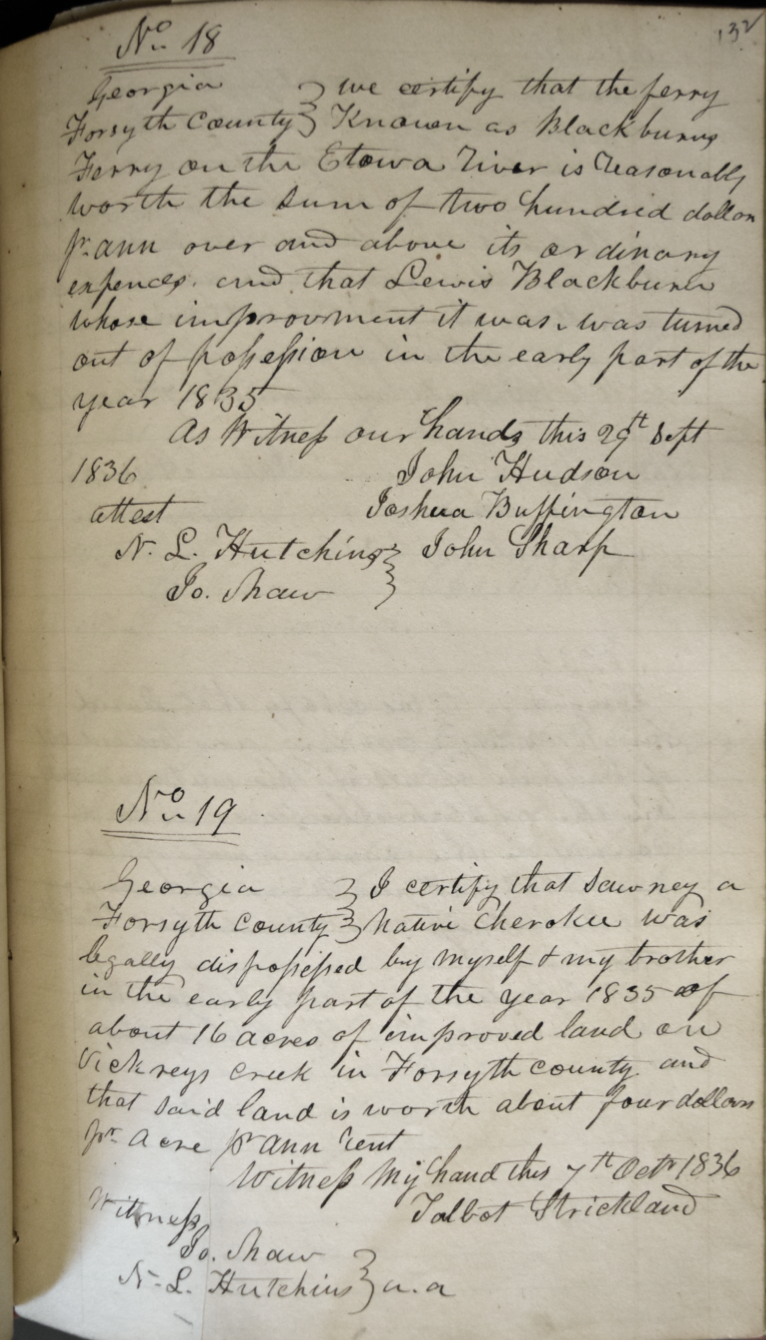 132
No. 18
Georgia } we certify that the ferry
Forsyth County } Known as Blackburns
Ferry on the Etowa River is reasonably
worth the sum of two hundred dollars
pr. ann over and above its ordinary
expences. and that Lewis Blackburn
whose improvment it was, was turned
out of possession in the early part of the
year 1835
As Witness our hands this 29th Sept
1836 John Hudson
attest Joshua Buffington
N. L. Hutchins } John Sharp
Jo. Shaw }
No. 19
Georgia } I certify that Sawney a
Forsyth County } Native Cherokee was
legally dispossessed by myself & my brother
in the early part of the year 1835 of
about 16 acres of improved land on
Vickreys Creek in Forsyth county and
that said land is worth about four dollars
pr. Acre pr ann rent
Witness My hand this 7th Octr 1836
Witness Talbot Strickland
Jo. Shaw }
N. L. Hutchins } a.a